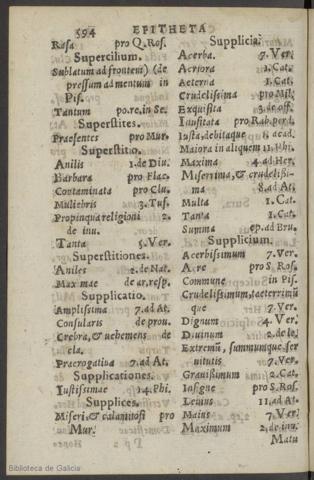 594 EPITHETA
Rasa pro Q. Ros.
Supercilium.
Sublatum ad frontem) (de
pressum ad mentum in
Pis.
Tantum po.re.in Se.
Superstites.
Praesentes pro Mur.
Superstitio.
Anilis 1.de Diu.
Barbara pro Flac.
Contaminata pro Clu.
Muliebris 3.Tus.
Propinqua religioni 2.
de inu.
Tanta 5.Ver.
Superstitiones.
Aniles 2.de Nat.
Maximae de ar.resp.
Supplicatio.
Amplissima 7.ad At.
Consularis de prou.
Crebra, & uehemens de
cla.
Praerogatiua 7.ad At.
Supplicationes.
Iustissimae 14.Phi.
Supplices.
Miseri, & calamitosi pro
Mur.
Supplicia.
Acerba. 7.Ver.
Acriora 1.Cat.
Aeterna 1.Cat.
Crudelissima pro Mil.
Exquisita 3.de off.
Inusitata pro Rab.perd.
Iusta, debitaque 1.acad.
Maiora in aliquem 11.Phi.
Maxima 4.ad Her.
Miserrima, & crudelissi-
ma 8.ad At.
Multa 1.Cat.
Tanta 1.Cat.
Summa ep.ad Bru.
Supplicium.
Acerbissimum 7.Ver.
Acre pro S.Ros.
Commune in Pis.
Crudelissimum, taeterrimū
que 7.Ver.
Dignum 4.Ver.
Diuinum 2.de le.
Extremū, summunque ser
uitutis 7.Ver.
Grauissimum 2.Cat.
Insigne pro S.Ros.
Leuius 11.ad At.
Maius 7.Ver.
Maximum 2.de inu.
Matu
Biblioteca de Galicia